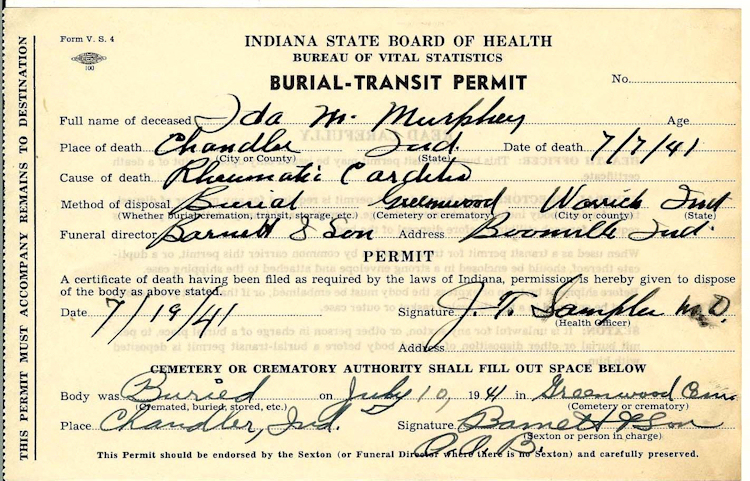 THIS PERMIT MUST ACCOMPANY REMAINS TO DESTINATION
Form V. S. 4
100
INDIANA STATE BOARD OF HEALTH
BUREAU OF VITAL STATISTICS
BURIAL-TRANSIT PERMIT
No.
Full name of deceased Ida M. Murphey Age
Place of death Chandler Ind. Date of death 7/7/41
(City or County) (State)
Cause of death Rheumatic Carditis
Method of disposal Burial Greenwood Warrick Ind
(Whether burial, cremation, transit, storage, etc.) (Cemetery or crematory) (City or county) (State)
Funeral director Barnett & Son Address Boonville Ind.
PERMIT
A certificate of death having been filed as required by the laws of Indiana, permission is hereby given to dispose
of the body as above stated.
Date 7/19/41 Signature J. T. Samples M.D.
(Health Officer)
Address
CEMETERY OR CREMATORY AUTHORITY SHALL FILL OUT SPACE BELOW
Body was Buried on July 10, 1941 in Greenwood Cem
(Cremated, buried, stored, etc.) (Cemetery or crematory)
Place Chandler, Ind. Signature Barnett & Son
(Sexton or person in charge)
This Permit should be endorsed by the Sexton (or Funeral Director where there is no Sexton) and carefully preserved.